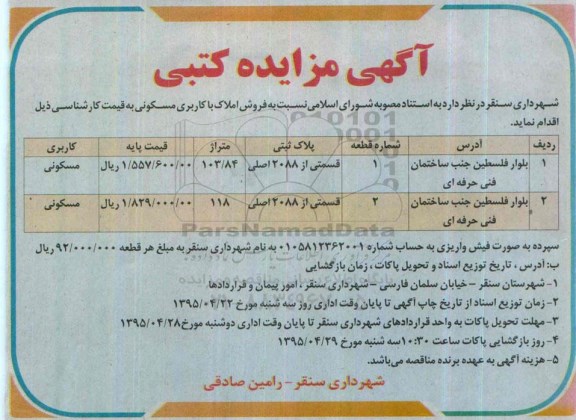 آگهی مزایده کتبی
شهرداری سنقر در نظر دارد به استناد مصوبه شورای اسلامی نسبت به فروش املاک با کاربری مسکونی به قیمت کارشناسی ذیل
اقدام نماید.
ردیف آدرس شماره قطعه پلاک ثبتی متراژ قیمت پایه کاربری
۱ بلوار فلسطین جنب ساختمان فنی حرفه ای ۱ قسمتی از ۲۰۸۸ اصلی ۱۰۳/۸۴ ۱/۵۵۷/۶۰۰/۰۰ ریال مسکونی
۲ بلوار فلسطین جنب ساختمان فنی حرفه ای ۲ قسمتی از ۲۰۸۸ اصلی ۱۱۸ ۱/۸۲۹/۰۰۰/۰۰ ریال مسکونی
ParsNamadData
سپرده به صورت فیش واریزی به حساب شماره ۰۱۰۵۸۱۲۳۶۲۰۰۱ به نام شهرداری سنقر به مبلغ هر قطعه ۹۲/۰۰۰/۰۰۰ ریال
ب: آدرس ، تاریخ توزیع اسناد و تحویل پاکات ، زمان بازگشایی
۱- شهرستان سنقر – خیابان سلمان فارسی – شهرداری سنقر ، امور پیمان و قراردادها
۲- زمان توزیع اسناد از تاریخ چاپ آگهی تا پایان وقت اداری روز سه شنبه مورخ ۱۳۹۵/۰۴/۲۲
۳- مهلت تحویل پاکات به واحد قراردادهای شهرداری سنقر تا پایان وقت اداری دوشنبه مورخ ۱۳۹۵/۰۴/۲۸
۴- روز بازگشایی پاکات ساعت ۱۰:۳۰ سه شنبه مورخ ۱۳۹۵/۰۴/۲۹
۵- هزینه آگهی به عهده برنده مناقصه می‌باشد.
شهرداری سنقر – رامین صادقی